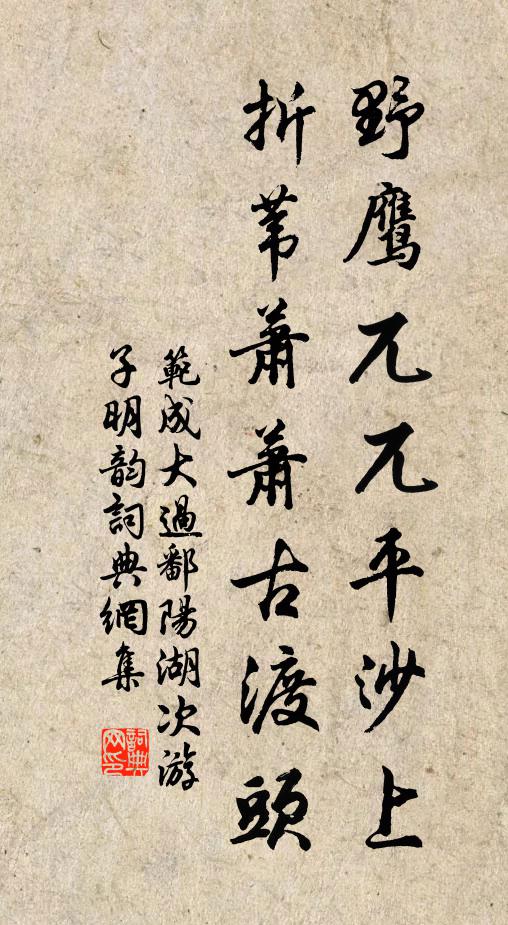 野鹰兀兀平沙上
折苇蕭蕭古渡頭
範成大過鄱陽湖次游
子明韵詞典網集
詞典
网印